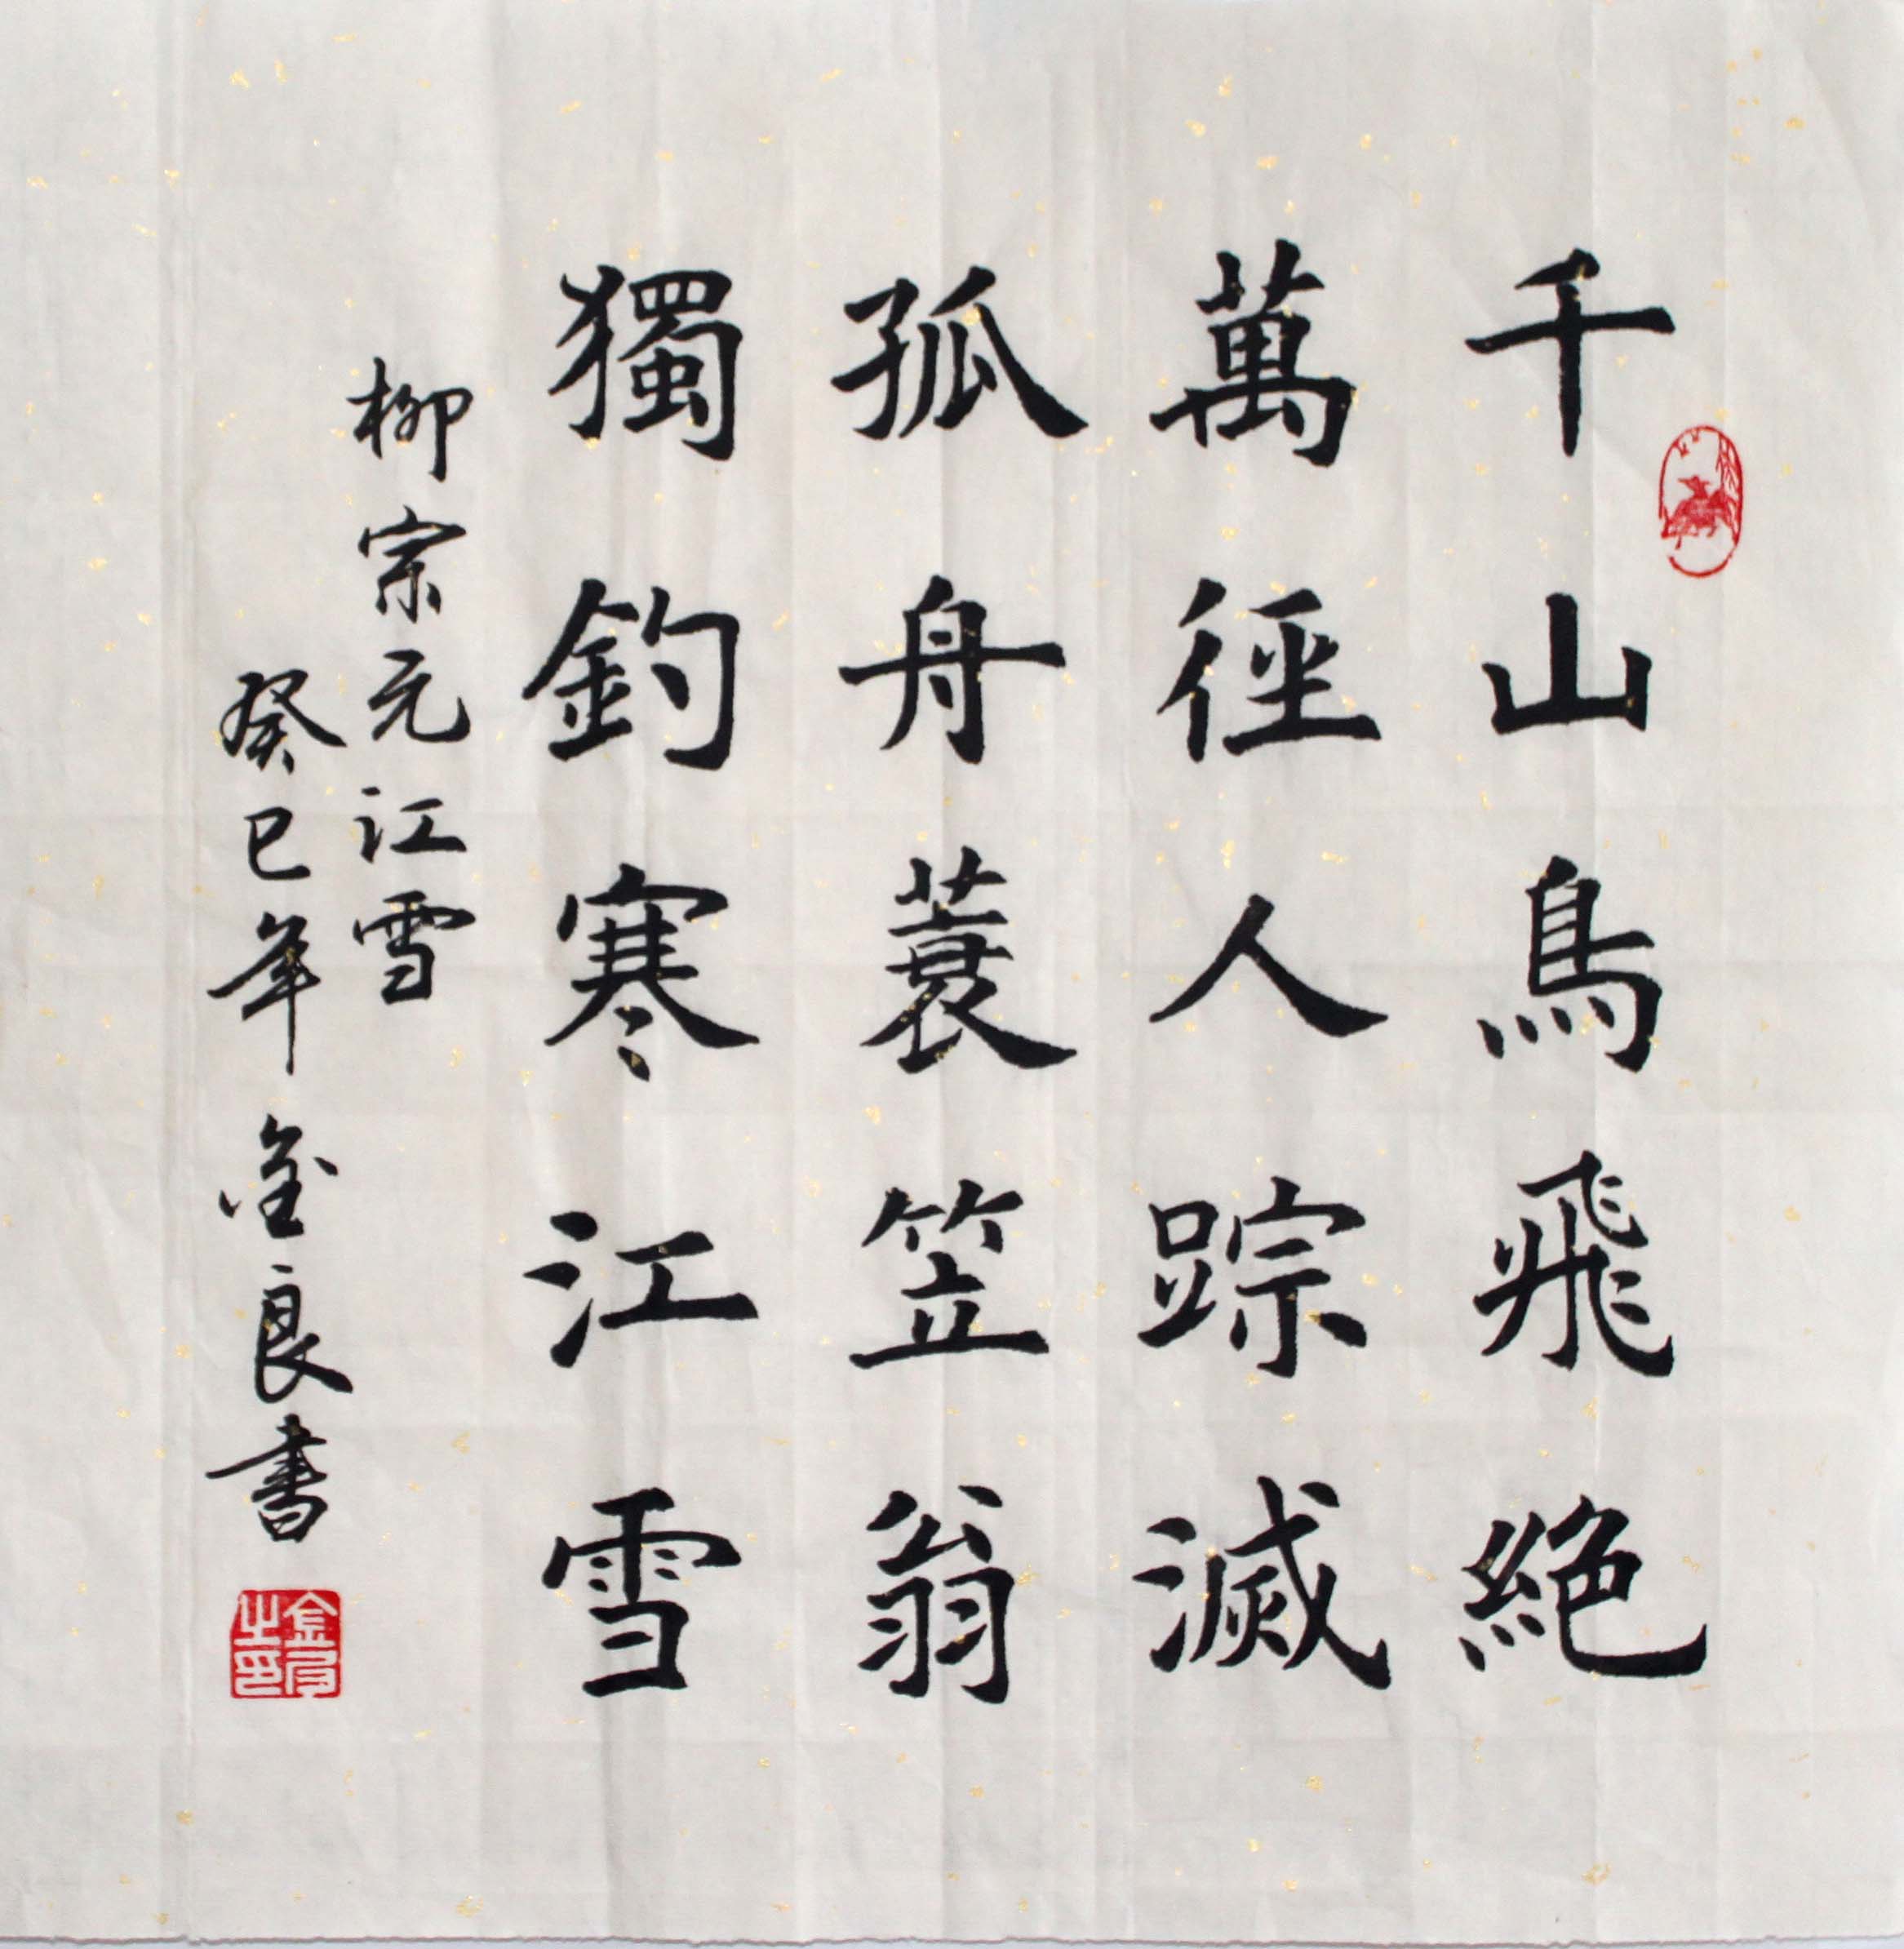 千山鳥飛絶
萬徑人踪滅
孤舟蓑笠翁
獨釣寒江雪
柳宗元江雪
癸巳年金良書